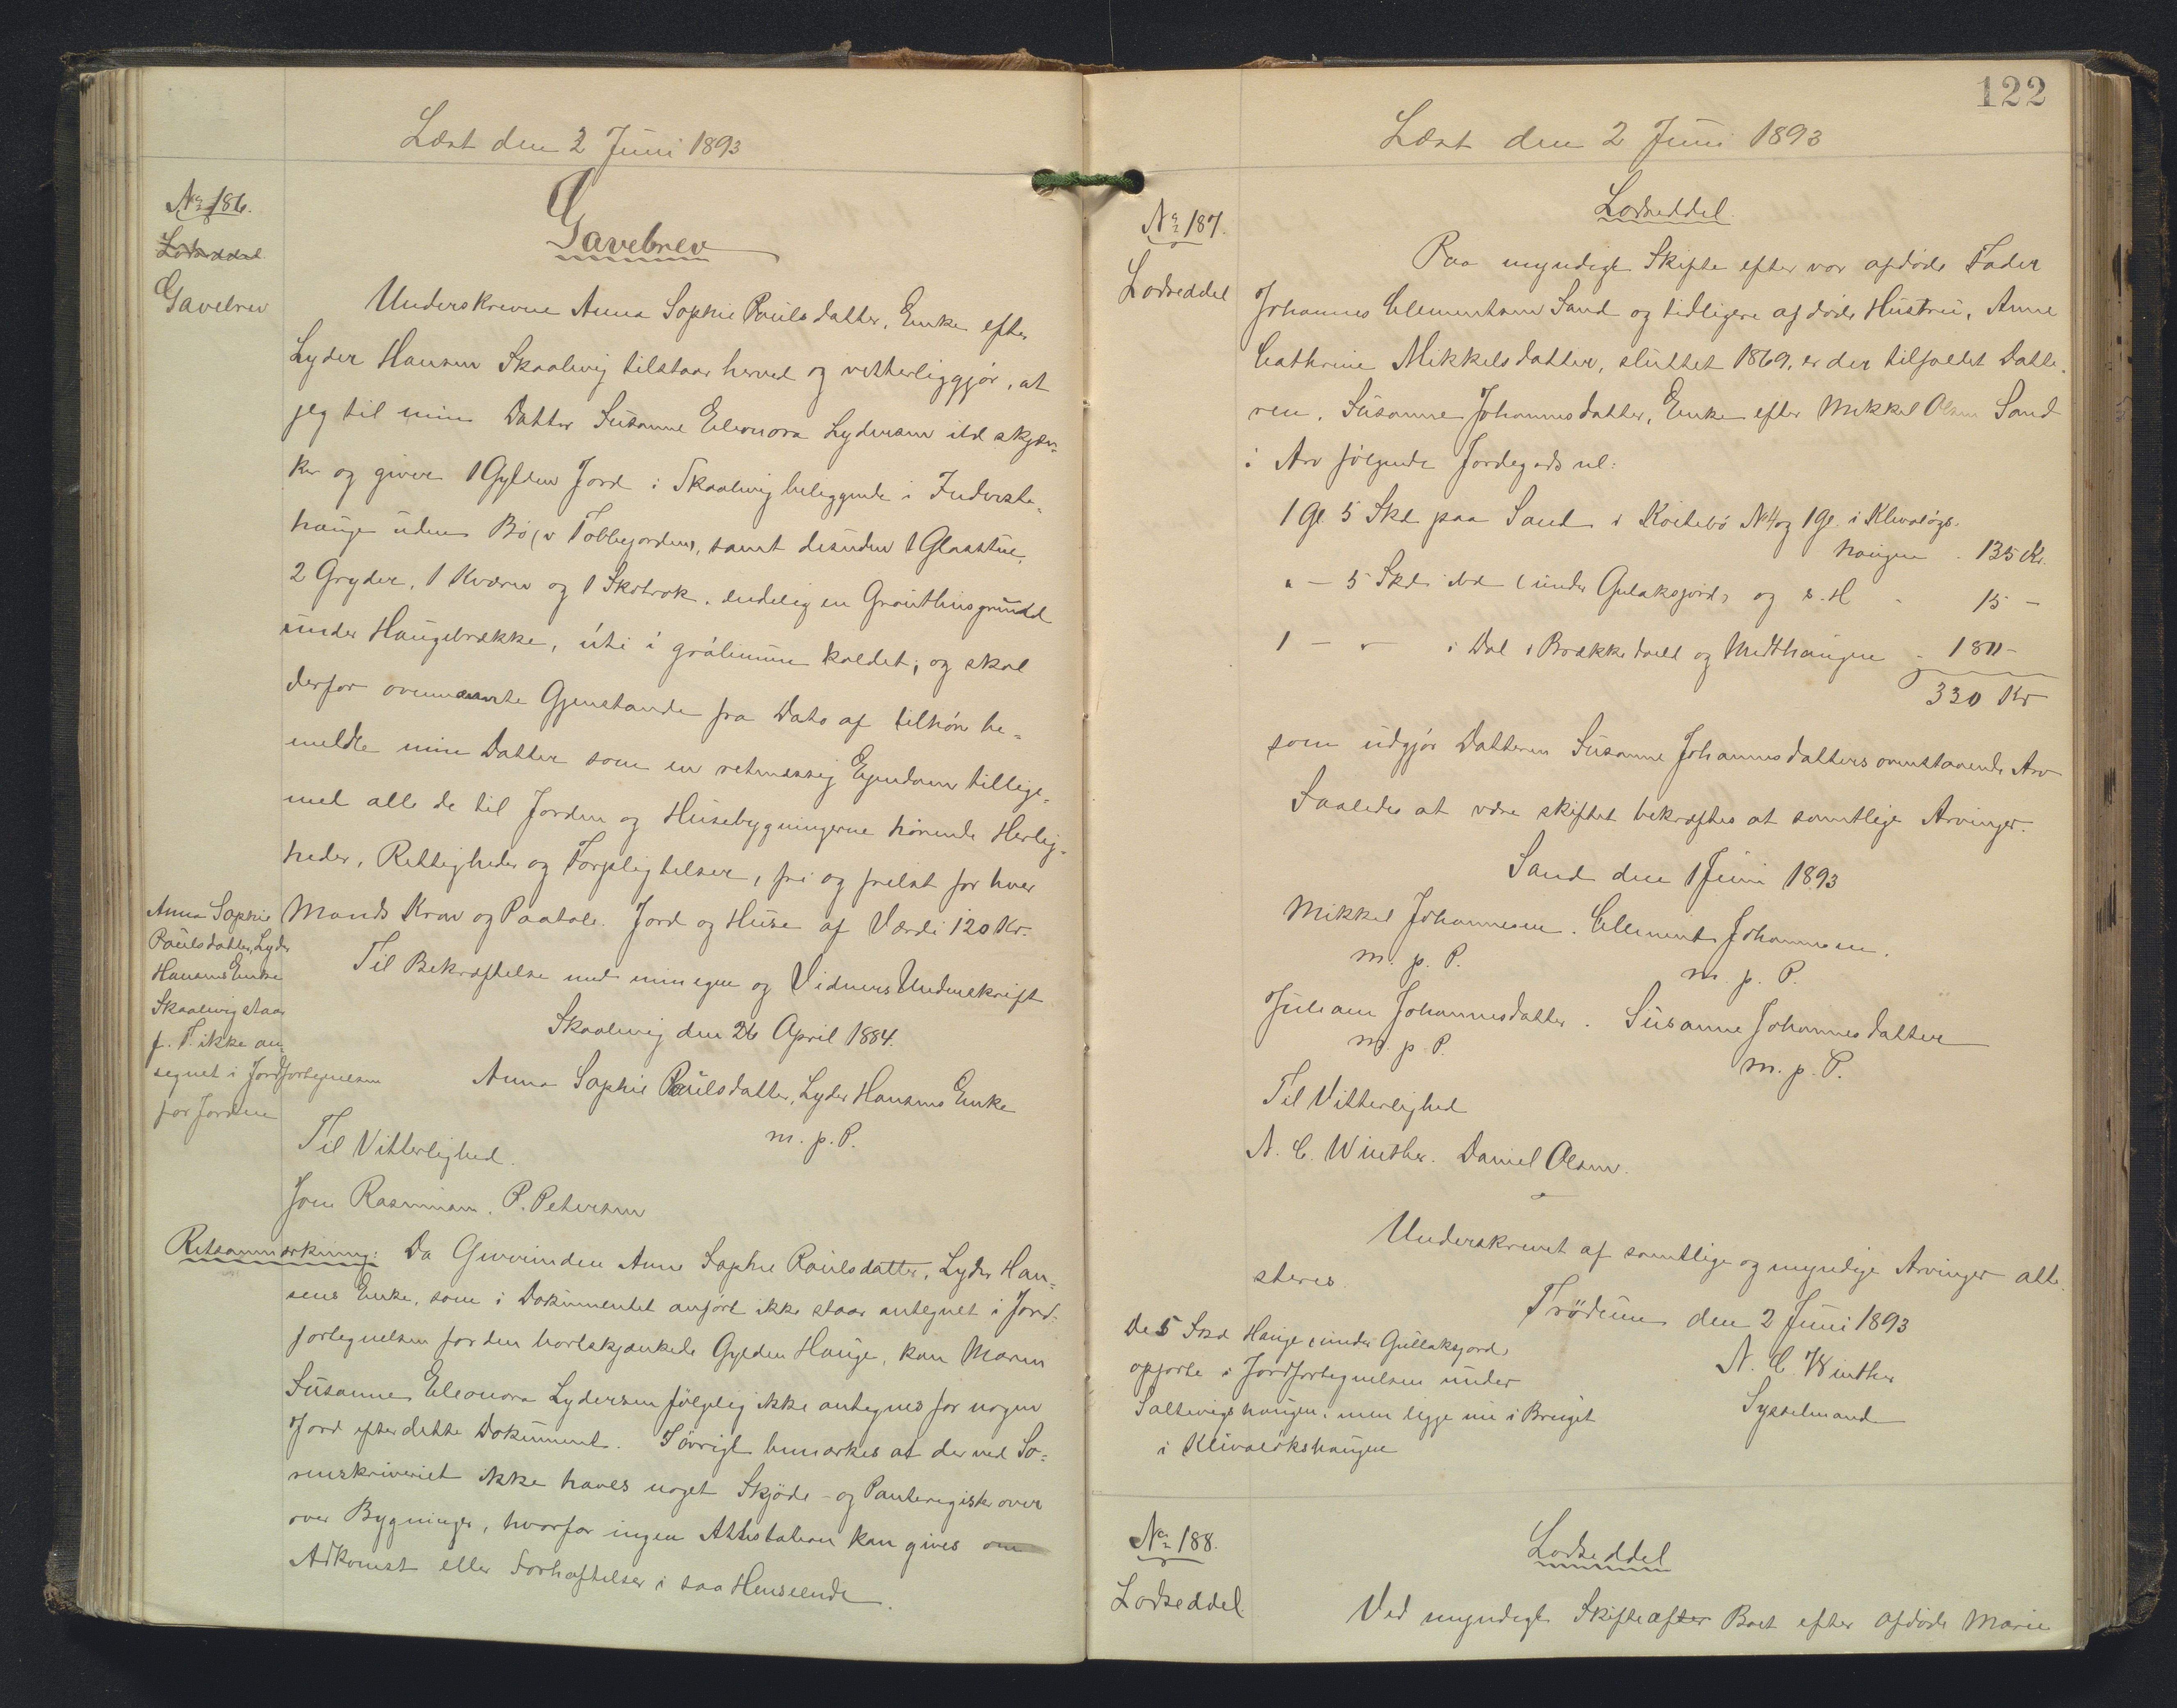 Læst den 2 Juni 1893
No 186.
Lodseddel
Gavebrev
Gavebrev
Underskrevne Anna Sophie Poulsdatter, Enke efter
Lyder Hansen Skaalevig tilstaar herved og vitterliggjør, at
jeg til min Datter Susanne Eleonora Lydersen skjæn-
ker og giver 1 Gylden Jord i Skaalevig beliggende i Inderste-
hauge uden Bø (v Tobbegordens, samt desuden 1 Glasstue,
2 Gryder, 1 Kværn og 1 Skotrok, endelig en Grouthusgrund
under Haugebrække, úti í grólinum kaldet; og skal
derfor ovennævnte Gjenstande fra Dato af tilhøre be-
meldte min Datter som en retmæssig Ejendom tillige-
med alle de til Jorden og Husebygningerne hørende Herlig-
heder, Rettigheder og Forpligtelser, fri og frelst for hver
Mands Krav og Paatale. Jord og Huse af Værdi 120 Kr.
Til Bekræftelse med min egen og Vidners Underskrift
Skaalevig den 26 April 1884.
Anna Sophie Poulsdatter, Lyder Hansens Enke
m. p. P.
Til Vitterlighed.
Joen Rasmussen. P. Petersen
Anna Sophie
Poulsdatter, Lyder
Hansens Enke
Skaalevig staar
p. T. ikke an-
tegnet i Jordfortegnelsen
for Jorden
Retsanmærkning: Da Giverinden Anna Sophie Poulsdatter, Lyder Han-
sens Enke, som i Dokumentet anført ikke staar antegnet i Jord-
fortegnelsen for den bortskjænkede Gylden Hauge, kan Maren
Susanne Eleonora Lydersen følgelig ikke antegnes for nogen
Jord efter dette Dokument. I øvrigt bemærkes at der ved So-
renskriveriet ikke haves noget Skjøde- og Panteregister over
over Bygninger, hvorfor ingen Attestation kan gives om
Adkomst eller Forhæftelser i saa Henseende.
122
Læst den 2 Juni 1893
No 187.
Lodseddel
Lodseddel
Paa myndigt Skifte efter vor afdøde Fader
Johannes Clementsen Sand og tidligere afdøde Hustru, Anne
Cathrine Mikkelsdatter, sluttet 1869, er der tilfaldet Datte-
ren, Susanne Johannesdatter, Enke efter Mikkel Olsen Sand
i Arv følgende Jordegods nl:
1 Gl 5 Skd paa Sand i Koitebø No 4 og 1 Gl. i Klivaløgs-
haugen - 135 Kr.
" - 5 Skd i (under Gulaksjord) og s. H - 15 -
1 - " i Dal i Brækkedeild og Midthaugen - 180 -
330 Kr
som udgjør Datteren Susanne Johannesdatters ovenstaaende Arv
Saaledes at være skiftet bekræftes at samtlige Arvinger.
Sand den 1 Juni 1893
Mikkel Johannesen. Clement Johannesen.
m. p. P. m. p. P.
Juliane Johannesdatter. Susanne Johannesdatter
m. p. P. m. p. P.
Til Vitterlighed
N. C. Winther. Daniel Olsen.
Underskrevet af samtlige og myndige Arvinger atte-
steres.
Trödum den 2 Juni 1893
N. C. Winther
Sysselmand
De 5 Skd Hauge (under Gullaksjord)
opførte i Jordfortegnelsen under
Saltevigshaugen, men legge nu i Bruget
i Klivaløkshaugen
No 188.
Lodseddel
Lodseddel
Ved myndigt Skifte after Boet efter afdøde Marie